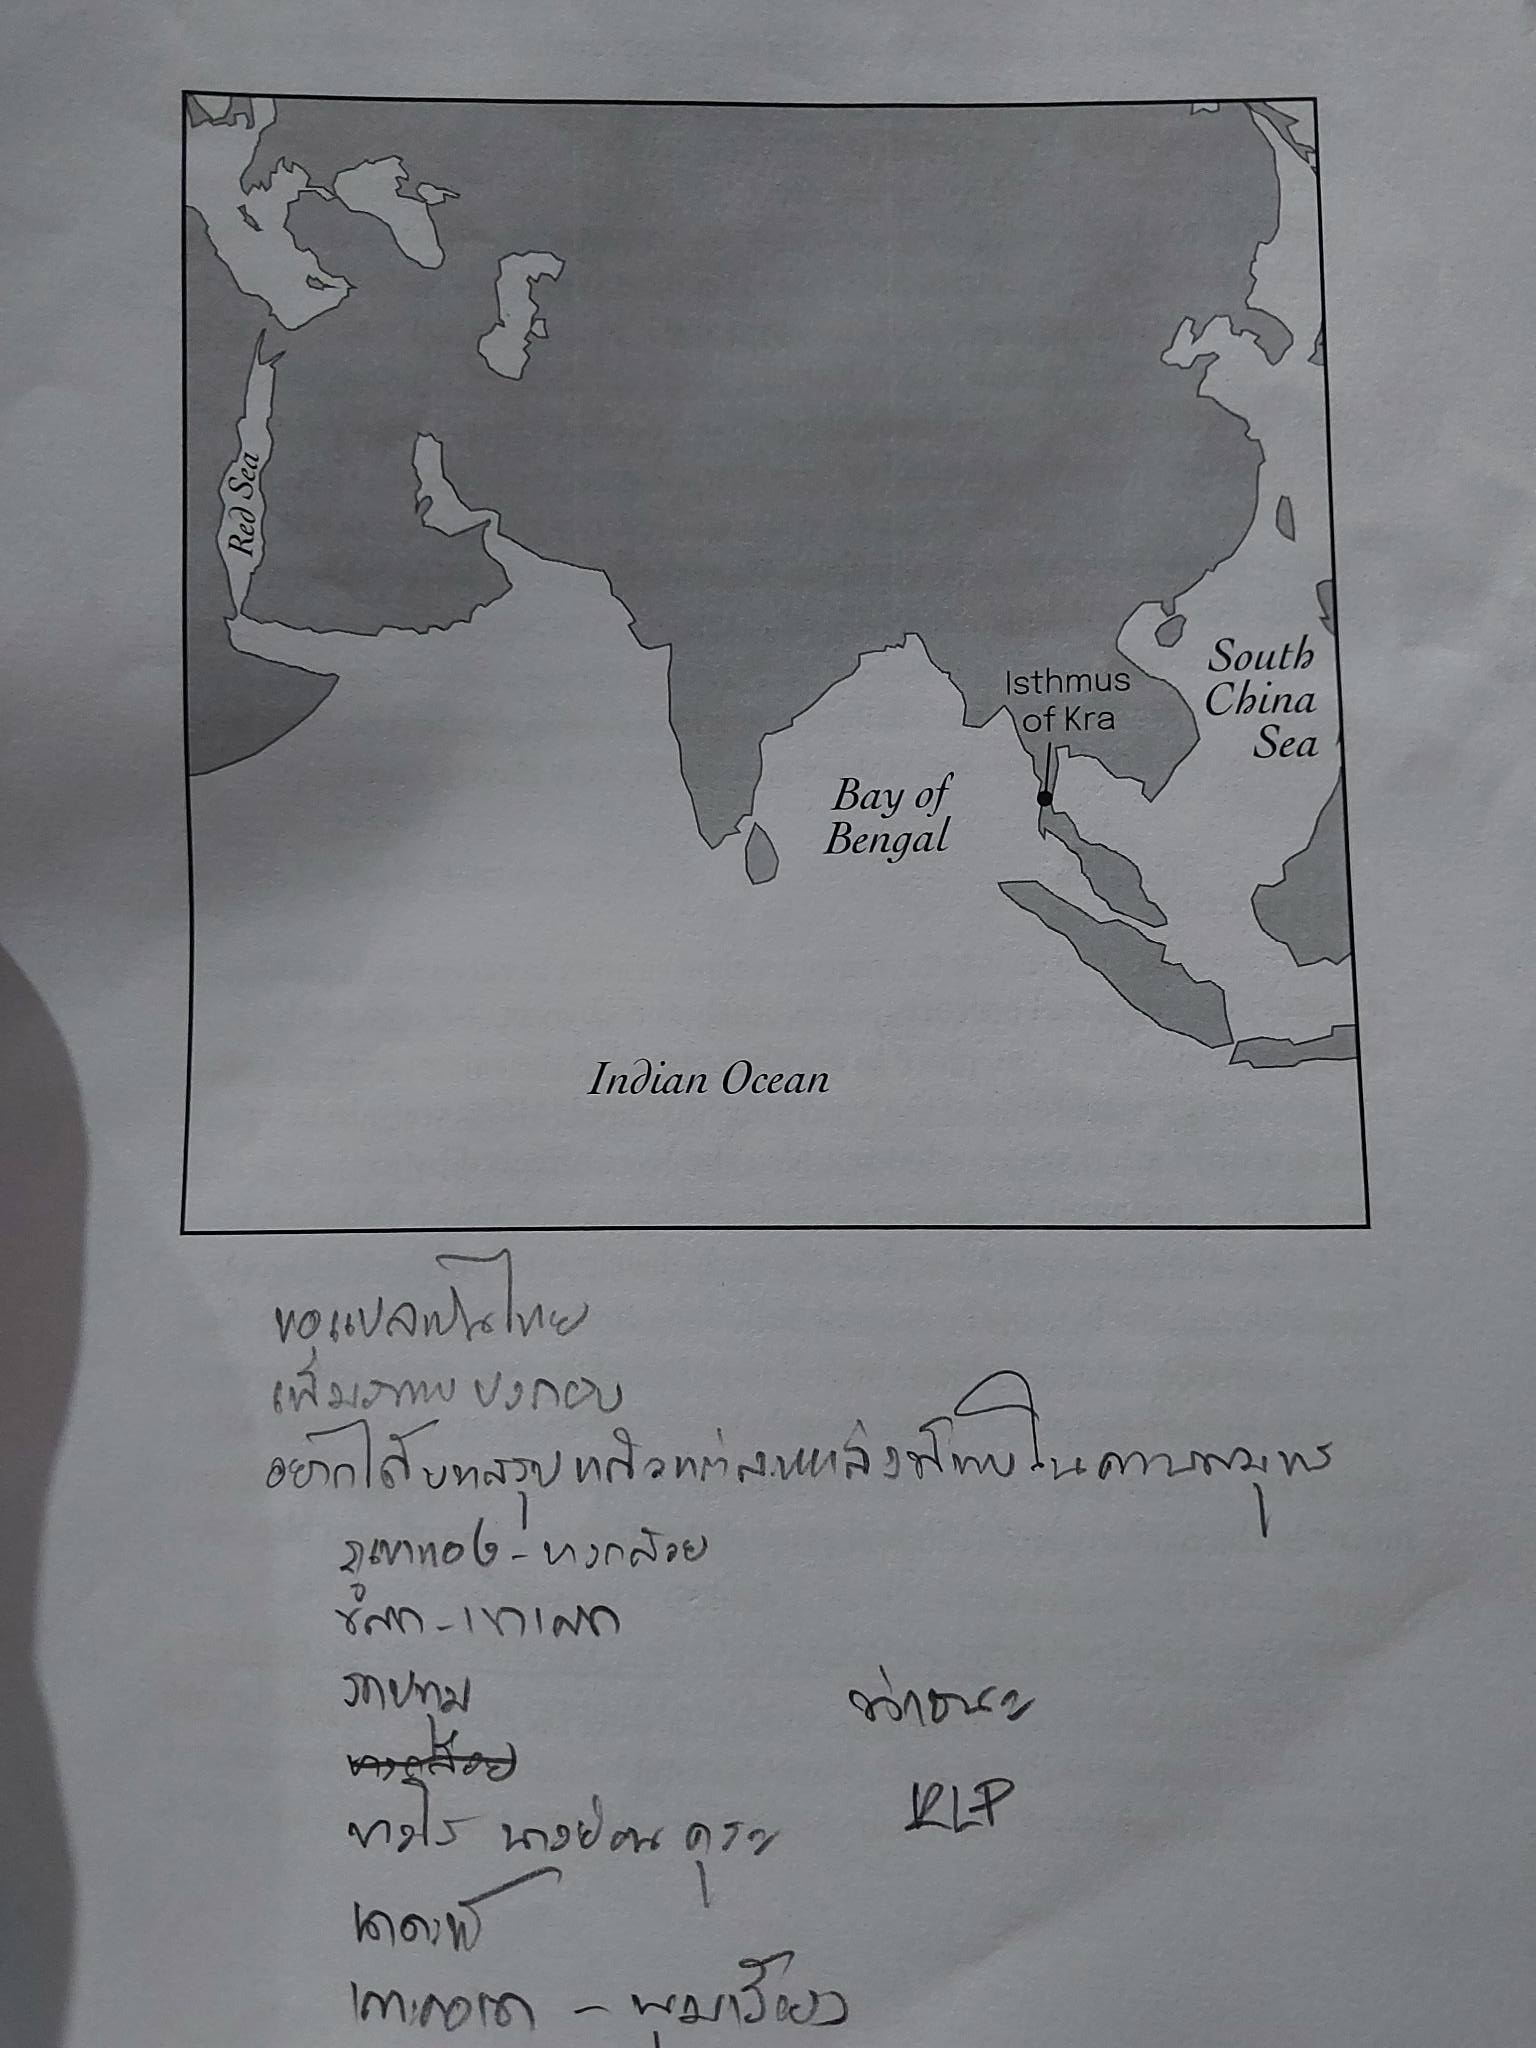 Red Sea
Isthmus
of Kra
South
China
Sea
Bay of
Bengal
Indian Ocean
ขอแปลเป็นไทย
เพิ่มภาพประกอบ
อยากได้บทสรุป แต่ละแหล่งที่พบในคาบสมุทร
ภูเขาทอง - บางกล้วย
เขาเสก
กะปทุม
บางกล้วย
นางย่อน คุระ
วิกชนะ
KLP
เกาะคอเขา - พุมเรียง